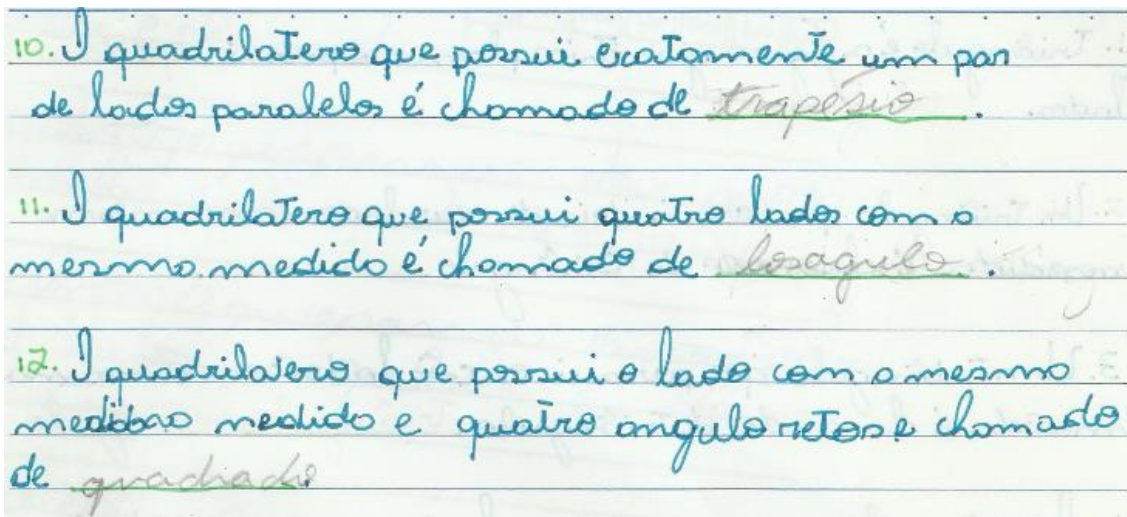 10. O quadrilatero que possui exatamente um par
de lados paralelos é chamado de trapésio.
11. O quadrilatero que possui quatro lados com a
mesma medida é chamado de losagulo.
12. O quadrilatero que possui o lado com a mesmo
medida e quatro angulo retos e chamado
de quadrado.